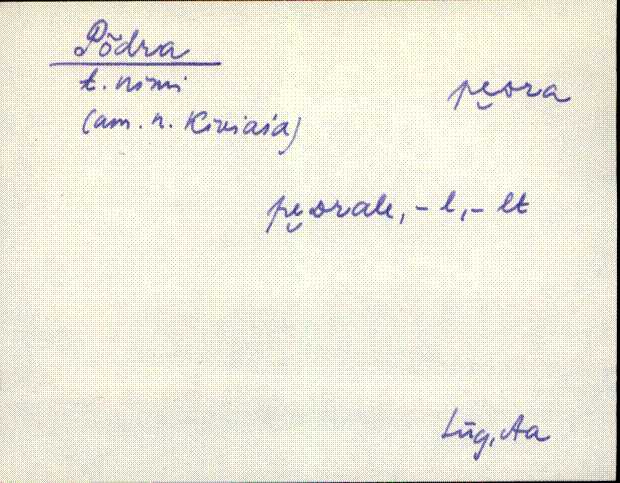 Põdra
t. nimi
(am. n. Kiviaia)
pe̮ora
pe̮orale, -l, -lt
Lüg, Aa